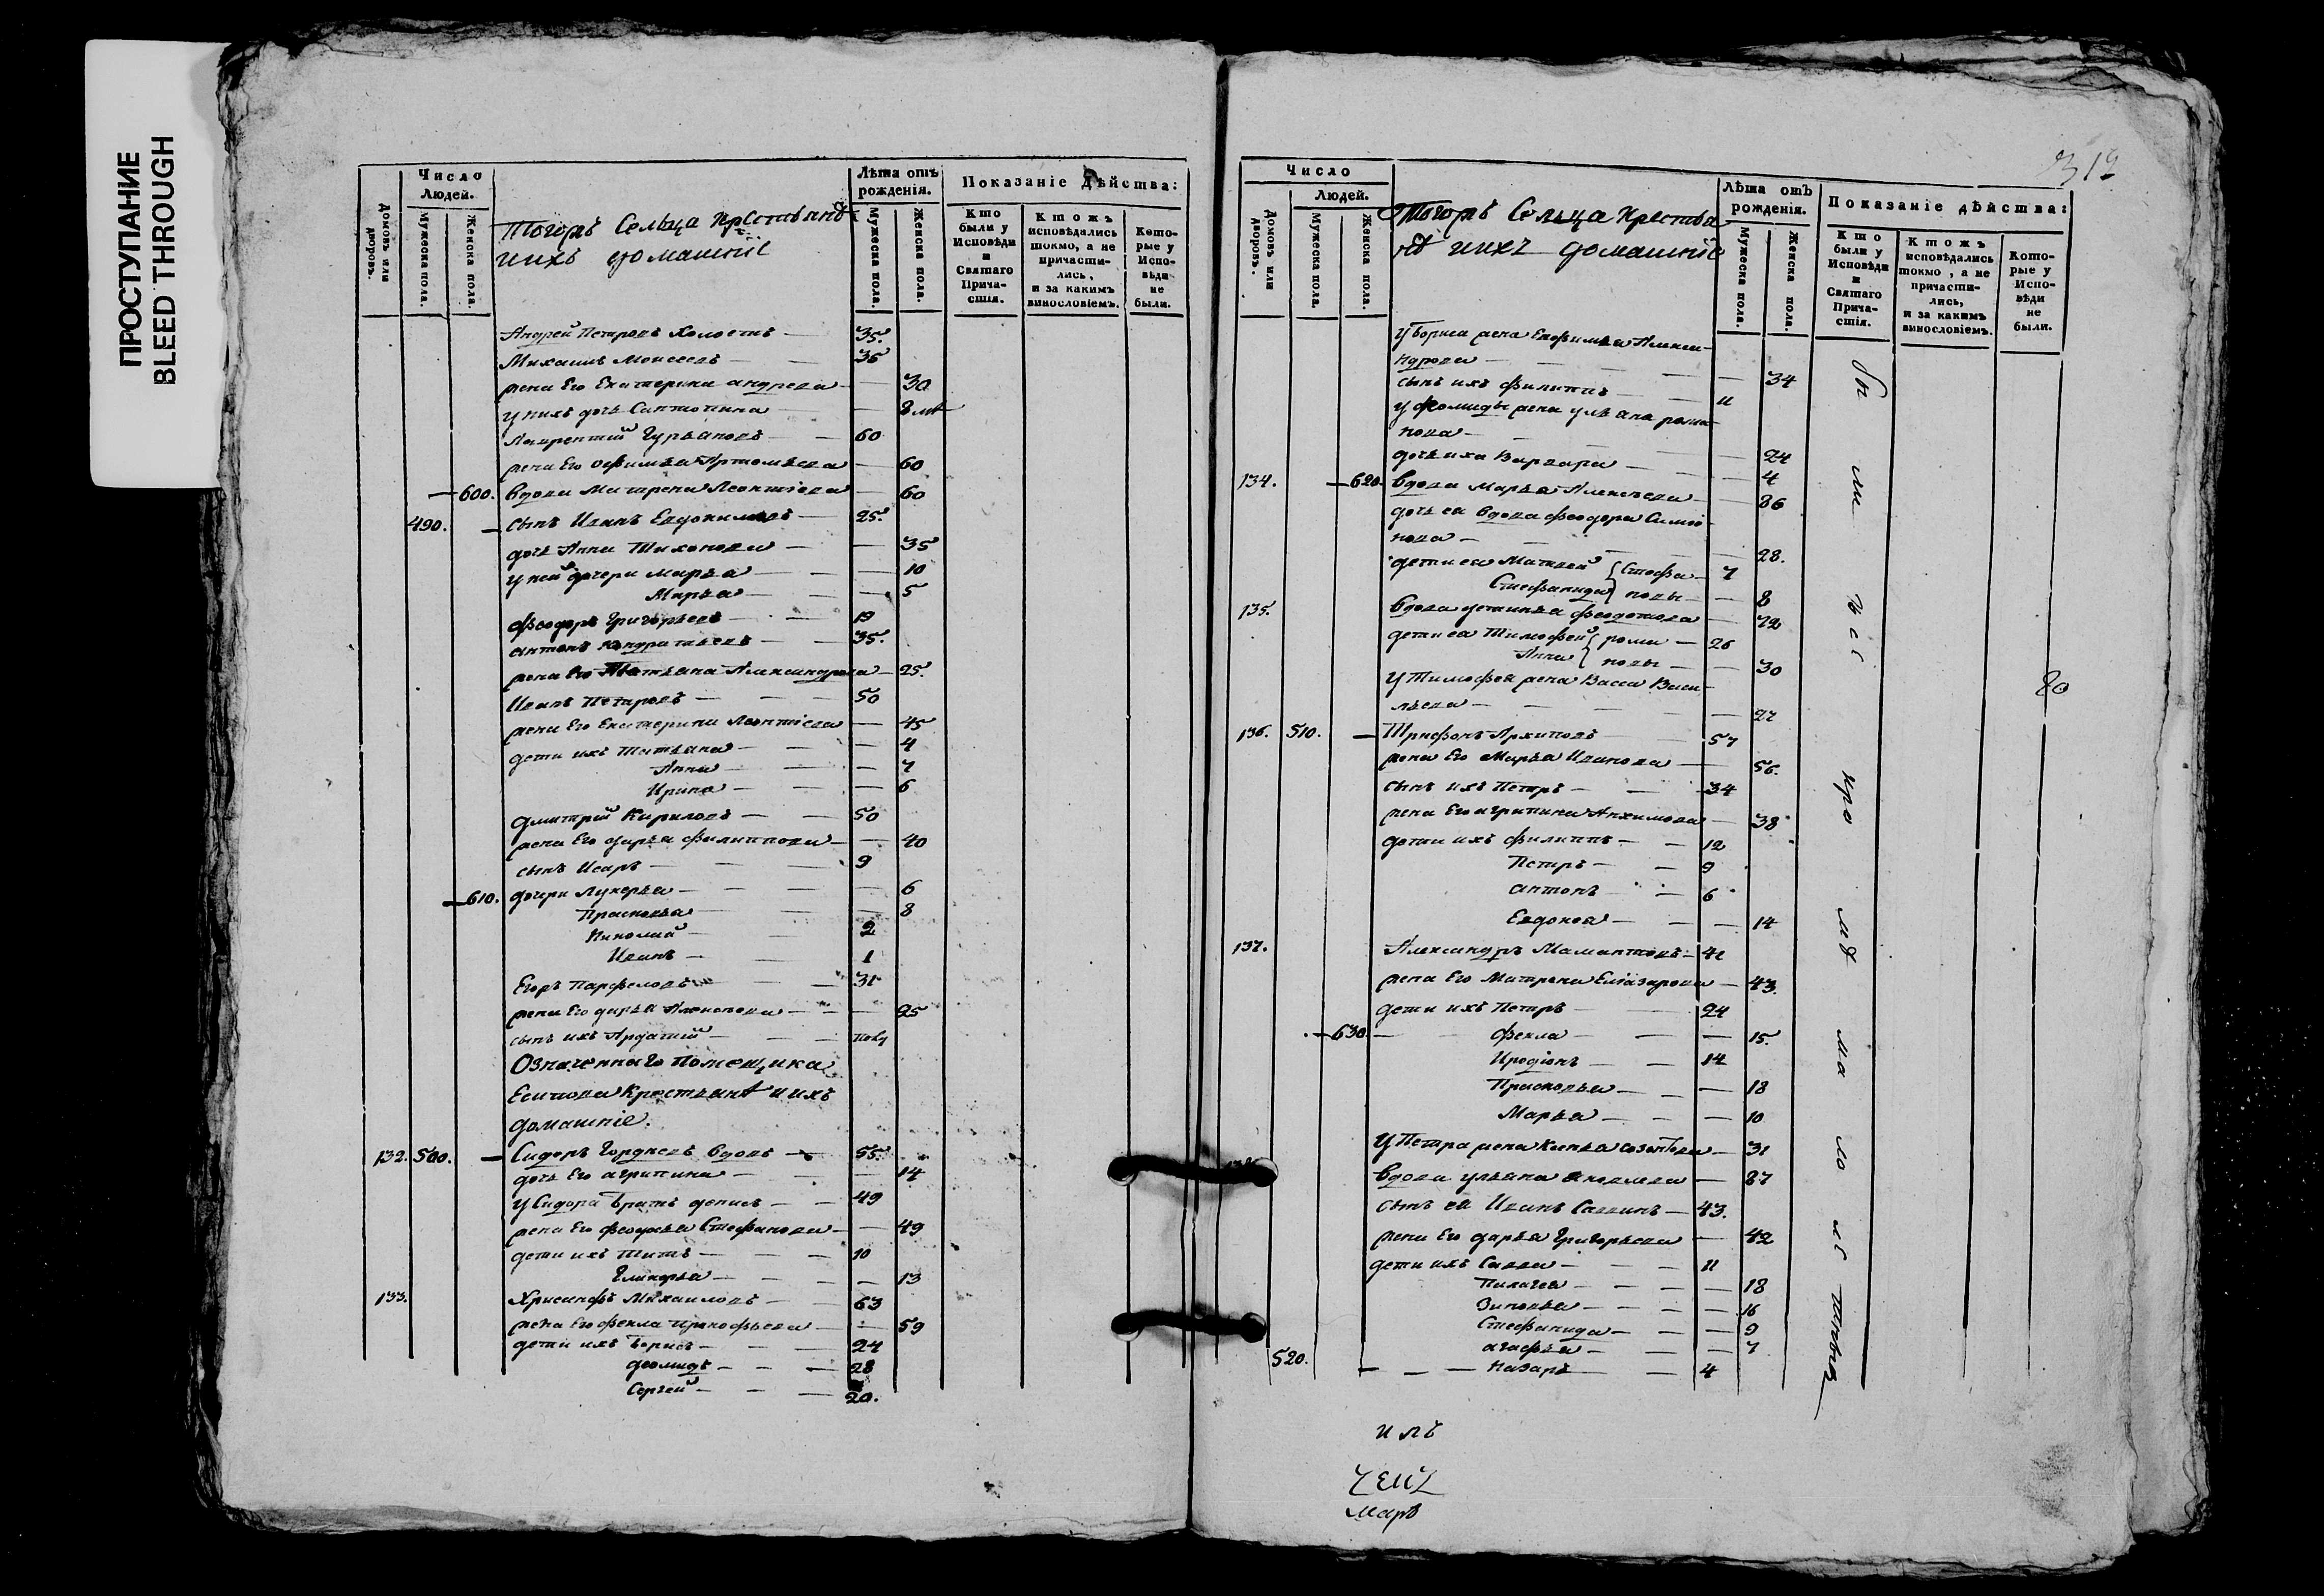 ПРОСТУПАНИЕ
BLEED THROUGH
Число
Людей.
Домовъ или дворовъ.
Мужеска пола.
Женска пола.
Тогожъ Сельца Крестьянѣ
иихъ домашнiе
Лѣта отъ рожденія.
Мужеска пола.
Женска пола.
Показаніе дѣйства:
Кто были у Исповѣди и Святаго Причастія.
Ктожъ исповѣдались токмо, а не причастились, и за какимъ винословіемъ.
Которые у Исповѣди не были.
Андрей Петровъ холостъ — 35.
Михаилъ Моисеевъ — — 36
жена Его Екатерина андреева — 30
у нихъ дочь
Лаврентий Гурьяновъ — — 60
жена Его Офимья Артемьева — 60
— 600. вдова Матрена Леонтiева — 60
490. — сынъ Иванъ Евдокимовъ — 25.
дочь Анна Тихонова — — 35
у ней дочери Марья — — 10
Марья — — — 5
Феодоръ Григорьевъ — — 19
антонъ Кондратьевъ — — 35.
жена Его Татьяна Александрова — 25.
Иванъ Петровъ — — — 50
жена Его Екатерина Леонтiева — 45
дети ихъ Татьяна — — — 4
Анна — — — 7
Ирина — — — 6
Дмитрей Кириловъ — — 50
жена Его дарья филиппова — — 40
сынъ Исаръ — — — 9
— 610. дочери Лукерья — — — — 6
Прасковья — — — 8
Николай — — 2
Иванъ — — 1
Егоръ Парфеновъ — — 31
жена Его дарья Алексеева — — — 25
сынъ ихъ — —
Означеннаго Помещика
Есипова Крестьянѣ иихъ
домашнiе.
132. 500. — Сидоръ Гордеевъ вдовъ — 55.
дочь Его агрипина — — — 14
у Сидора братъ денисъ — — 49
жена Его феодосья Стефанова — — 49
дети ихъ Титъ — — — 10
Гликерья — — — — 13
133. Хрисанфъ Михаиловъ — — 63
жена Его фекла Прокофьева — — 59
дети ихъ Борисъ — — — 24
диомидъ — — — 28
Сергей — — — 20.
319
Число
Людей.
Домовъ или дворовъ.
Мужеска пола.
Женска пола.
Тогожъ Сельца Крестья
нѣ иихъ домашнiе
Лѣта отъ рожденія.
Мужеска пола.
Женска пола.
Показаніе дѣйства:
Кто были у Исповѣди и Святаго Причастія.
Ктожъ исповѣдались токмо, а не причастились, и за какимъ винословіемъ.
Которые у Исповѣди не были.
у Бориса жена Евфимья Алекса-
ндрова — — — — 34
сынъ ихъ филиппъ — — 11
у диомида жена ульяна рома-
нова — — — — 24
дочь ихъ Варвара — — — 4
134. — 620. вдова Марья Алексеева — — 86
дочь ея вдова феодора Симио-
нова — — — — 28.
дети ея Матвей { Стефа- — 7
Стефанида } новы — — 8
135. вдова устинья федотова — — 72
дети ея Тимофей { рома — 26
Анна { новы — — 30
у Тимофея жена Васса Васи-
льева — — — — 27
136. 510. — Трифонъ Архиповъ — — 57
жена Его Марья Иванова — — 56.
сынъ ихъ Петръ — — — 34
жена Его агрипина — 38
дети ихъ филиппъ — — 12
Петръ — — 9
антонъ — — 6
Евдокея — — — 14
137. Александръ Мамантовъ — 42
жена Его Матрена Елiазарова — 43.
дети ихъ Петръ — — 24
— 630. — фекла — — — 15.
Иродiонъ — — 14
Прасковья — — — 18
Марья — — — 10
у Петра жена — 31
вдова ульяна — 87
сынъ ея Иванъ Саввинъ — 43.
жена Его дарья Григорьева — 42
дети ихъ Савва — — — 11
Пелагея — — — 18
Зиновья — — — — 16
Стефанида — — — 9
агафья — — — 7
520. — — — Назаръ — — 4
80